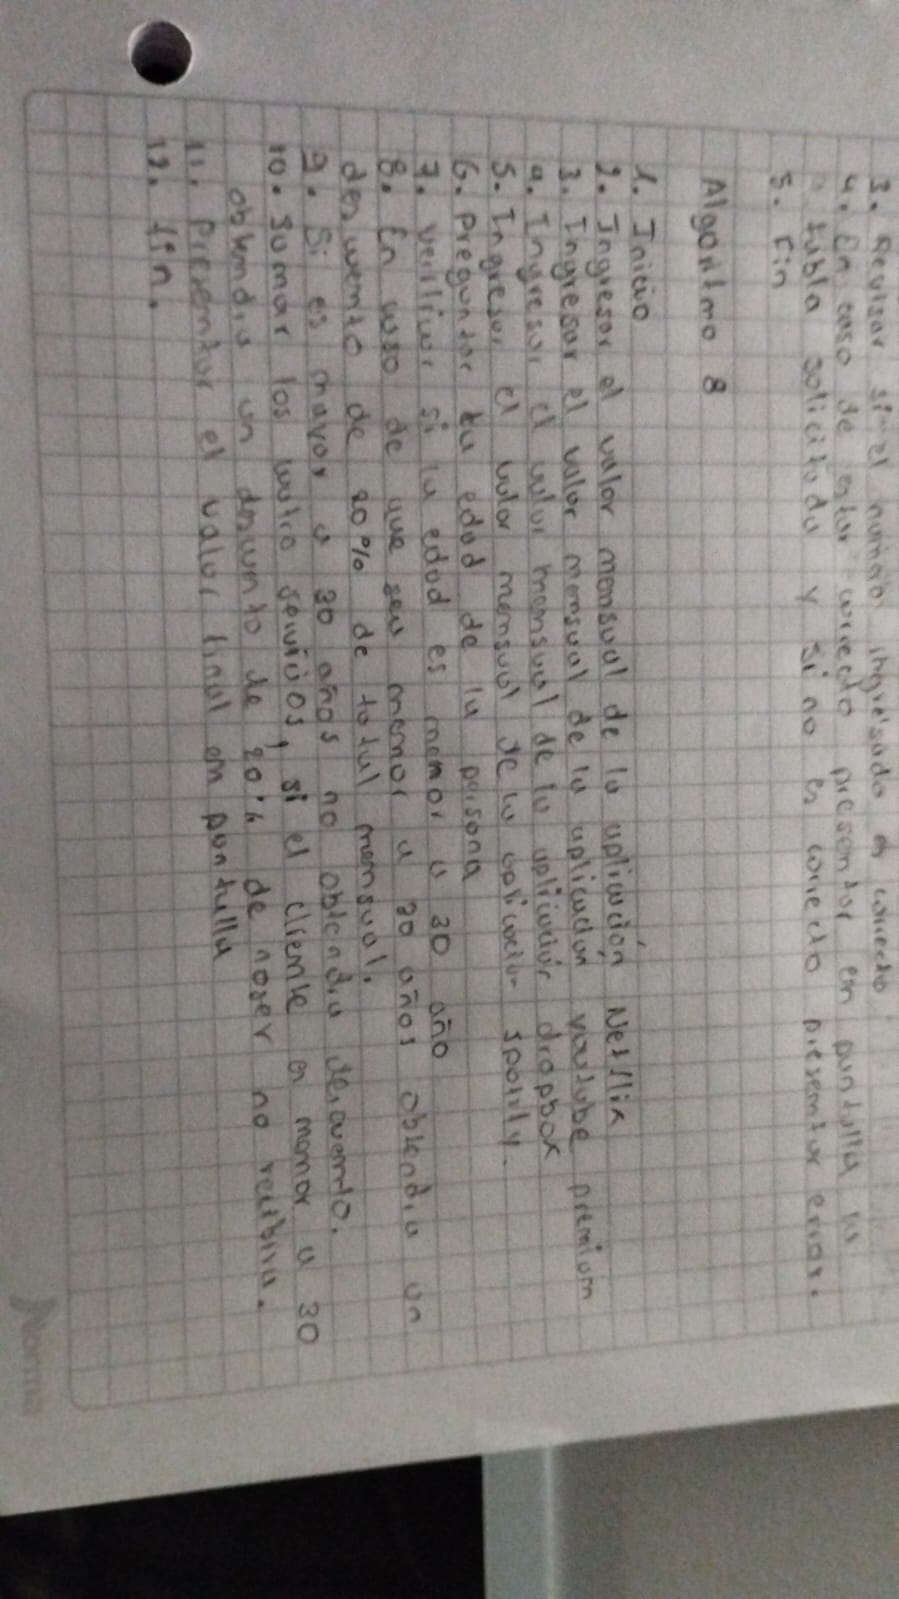 3. Revisar si el numero ingresado es correcto
4. En caso de estar correcto presentar en pantalla la
tabla solicitada y si no es correcto presentar error.
5. Fin
Algoritmo 8
1. Inicio
2. Ingresar el valor mensual de la aplicación Netflix
3. Ingresar el valor mensual de la aplicación youtube premium
4. Ingresar el valor mensual de la aplicación dropbox
5. Ingresar el valor mensual de la aplicacion spotify.
6. Preguntar la edad de la persona
7. verificar si la edad es menor a 30 año
8. En caso de que sea menor a 30 años obtendra un
descuento de 20% de total mensual.
9. Si es mayor a 30 años no obtendra descuento.
10. Sumar los cuatro servicios, si el cliente es menor a 30
obtendra un descuento de 20% de noser no recibira.
11. Presentar el valor final en pantalla
12. fin.
Norma